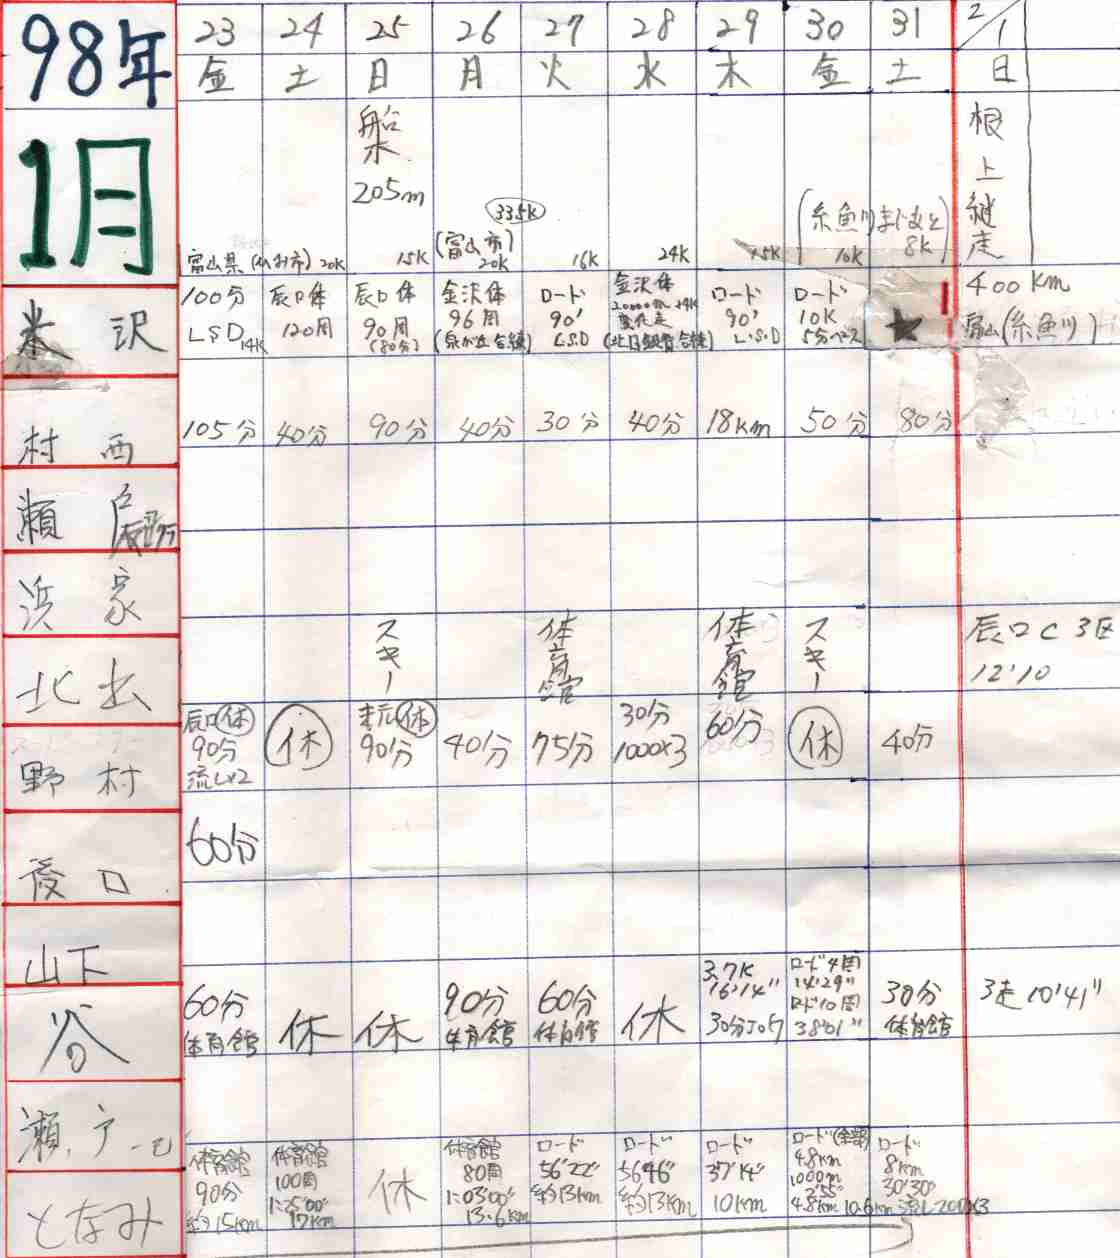 98年 23 24 25 26 27 28 29 30 31 2/1
金 土 日 月 火 水 木 金 土 日
1月
船木
205m
335K
根上継走
(糸魚川まじまと)
富山県 20K 15K (富山市) 20K 16K 24K 15K 10K 8K
米沢
100分 LSD 14K
辰口体 120周
辰口体 90周 (80分)
金沢体 96周
ロード 90' LSD
金沢体 20000m 24K
ロード 90' L.S.D
ロード 10K 5分ペース
★
400km
富山(糸魚川)
村西
105分 40分 90分 40分 30分 40分 18km 50分 80分
瀬戸
浜家
北出
スキー 体育館 体育館 スキー
辰口C 3区
12'10
野村
辰口休 90分 流し×2
休
休 90分
40分
75分
30分 1000×3
60分
休
40分
後口
60分
山下
谷
60分 体育館
休
休
90分 体育館
60分 体育館
休
3.7K 16'14" 30分JOG
ロード4周 14'29" ロード10周 38'01"
30分 体育館
3走 10'41"
瀬戸
となみ
体育館 90分 約15km
体育館 100周 1:25'00" 17km
休
体育館 80周 1:03'00" 13.6km
ロード 56'22" 約13km
ロード 56'46" 約13km
ロード 37'14" 10km
ロード 4.8km 1000m 3'55" 4.8km 10.6km
ロード 8km 30'30" 流し200×3